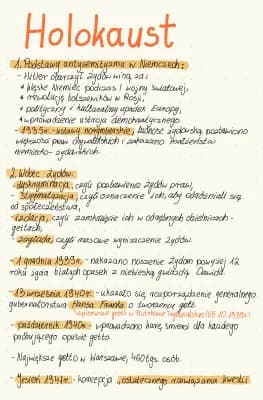 Holokaust
1. Podstawy antysemityzmu w Niemczech:
- Hitler obarczył Żydów winą za:
* klęskę Niemiec podczas I wojny światowej,
* rewolucję bolszewików w Rosji,
* polityczny i kulturalny upadek Europy,
* wprowadzenie ustroju demokratycznego.
- 1935r.- ustawy norymberskie, ludność żydowską pozbawiono
większości praw obywatelskich i zakazano małżeństw
niemiecko - żydowskich.
2. Wobec Żydów:
- dyskryminacja, czyli pozbawienie Żydów praw,
- stygmatyzacja, czyli oznaczenie ich, aby odróżniali się
od społeczeństwa,
- izolacja, czyli zamknięcie ich w odrębnych dzielnicach-
gettach,
- zagłada, czyli masowe wyniszczenie Żydów.
- 1 grudnia 1939r. - nakazano noszenie Żydom powyżej 12
roku życia białych opasek z niebieską gwiazdą Dawida.
- 13 września 1940r. - ukazało się rozporządzenie generalnego
gubernatorstwa Hansa Franka o tworzeniu gett.
pierwsze getto w Piotrkowie Trybunalskim (05.10.1939r.)
- październik 1940r. - wprowadzono karę śmierci dla każdego
próbującego opuścić getto.
- Największe getto w Warszawie, 460tys. osób.
- Jesień 1941r. - koncepcja „ostatecznego rozwiązania kwestii